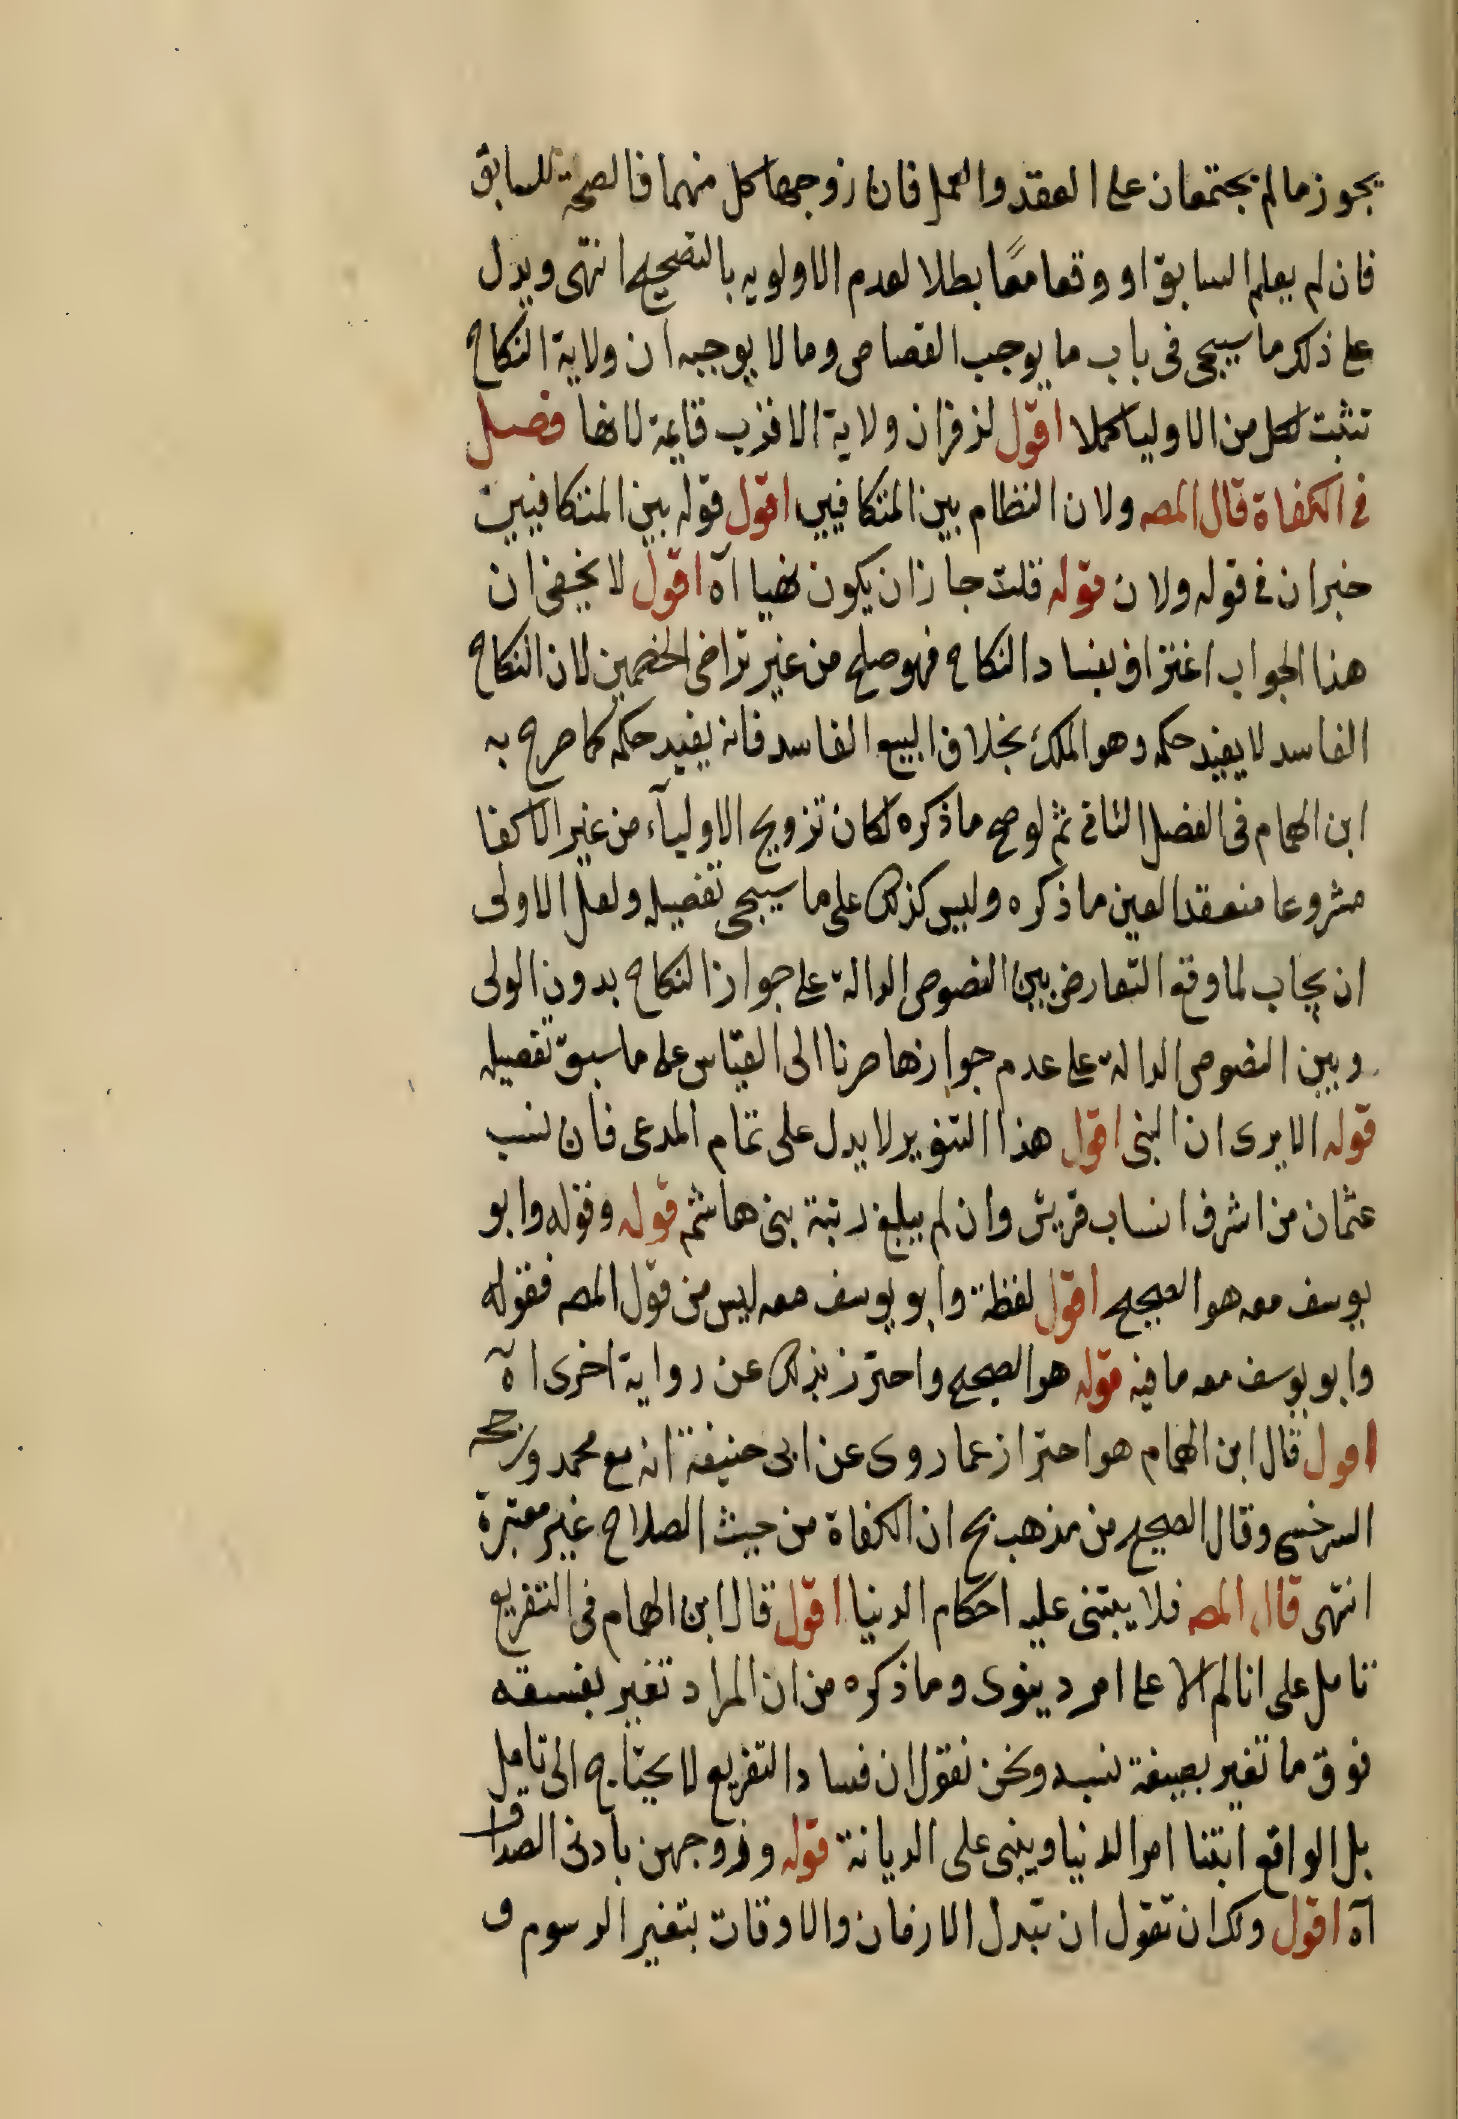 يجوز ما لم يجتمعان على العقد والعمل فان زوجها كل منهما فالصحة للسابق
فان لم يعلم السابق او وقعا معًا بطلا لعدم الاولويه بالتصحيح انتهى ويدل
على ذلك ما سيجى فى باب ما يوجب القصاص وما لا يوجبه ان ولاية النكاح
تثبت لكل من الاوليا كملا اقول لزفر ان ولاية الاقرب قايمة لانها فصل
فى الكفاة قال المصه ولان النظام بين المتكافيين اقول قوله بين المتكافيين
خبر ان فى قوله ولان قوله قلت جاز ان يكون نهيا اه اقول لا يخفى ان
هذا الجواب اعتراف بفساد النكاح فهو صلح من غير تراضى الخصمين لان النكاح
الفاسد لا يفيد حكمه وهو الملك بخلاف البيع الفاسد فانه يفيد حكمه كما صرح به
ابن الهمام فى الفصل الثانى ثم لو صح ما ذكره لكان تزويج الاولياء من غير الاكفا
مشروعا منعقدا لعين ما ذكره وليس كذلك على ما سيجى تفصيله ولعل الاولى
ان يجاب لما وقع التعارض بين النصوص الدالة على جواز النكاح بدون الولى
وبين النصوص الدالة على عدم جوازها صرنا الى القياس على ما سبق تفصيله
قوله الا يرى ان النبى اقول هذا التنوير لا يدل على تمام المدعى فان نسب
عثمان من اشرف انساب قريش وان لم يبلغ رتبة بنى هاشم قوله وقوله وابو
يوسف معه هو الصحيح اقول لفظة وابو يوسف معه ليس من قول المصه فقوله
وابو يوسف معه ما فيه قوله هو الصحيح واحترز بذلك عن رواية اخرى اه
اقول قال ابن الهمام هو احتراز عما روى عن ابى حنيفة انه مع محمد ورجحه
السرخسى وقال الصحيح من مذهب ح ان الكفاة من حيث الصلاح غير معتبرة
انتهى قال المصه فلا يبتنى عليه احكام الدنيا اقول قال ابن الهمام فى التفريع
تامل على انا لم الا على امر دينوى وما ذكره من ان المراد تعير بفسقه
فوق ما تعير بصيغة نسبه ونحن نقول ان فساد التفريع لا يحتاج الى تامل
بل الواقع ابتنا امر الدنيا ويبنى على الديانة قوله وزوجهن بادنى الصداق
اه اقول ولك ان تقول ان تبدل الازمان والاوقات بتغير الرسوم و